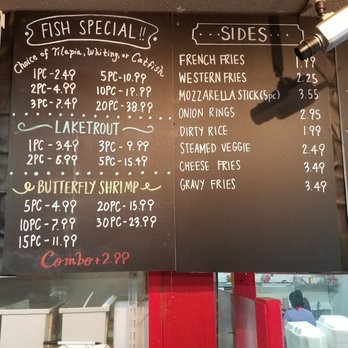 FISH SPECIAL!!
Choice of Tilapia, Whiting, or Catfish
1PC - 2.49 5PC - 10.99
2PC - 4.99 10PC - 19.99
3PC - 7.49 20PC - 38.99
LAKETROUT
1PC - 3.49 3PC - 9.99
2PC - 6.99 5PC - 15.49
BUTTERFLY SHRIMP
5PC - 4.99 20PC - 15.99
10PC - 7.99 30PC - 23.99
15PC - 11.99
Combo + 2.99
SIDES
FRENCH FRIES 1.99
WESTERN FRIES 2.25
MOZZARELLA STICK (5pc) 3.55
ONION RINGS 2.95
DIRTY RICE 1.99
STEAMED VEGGIE 2.49
CHEESE FRIES 3.49
GRAVY FRIES 3.49